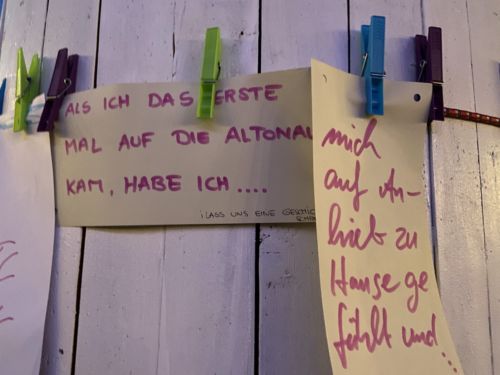 ALS ICH DAS ERSTE
MAL AUF DIE ALTONAL
KAM, HABE ICH....
LASS UNS EINE GESCHIC
mich
auf An-
hieb zu
Hause ge
fühlt und...